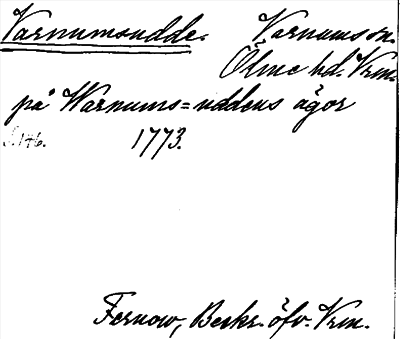 Varnumsudde. Varnums sn.
Ölme hd. Vrm.
på Warnums=uddens ägor
S. 146. 1773.
Fernow, Beskr. öfv. Vrm.